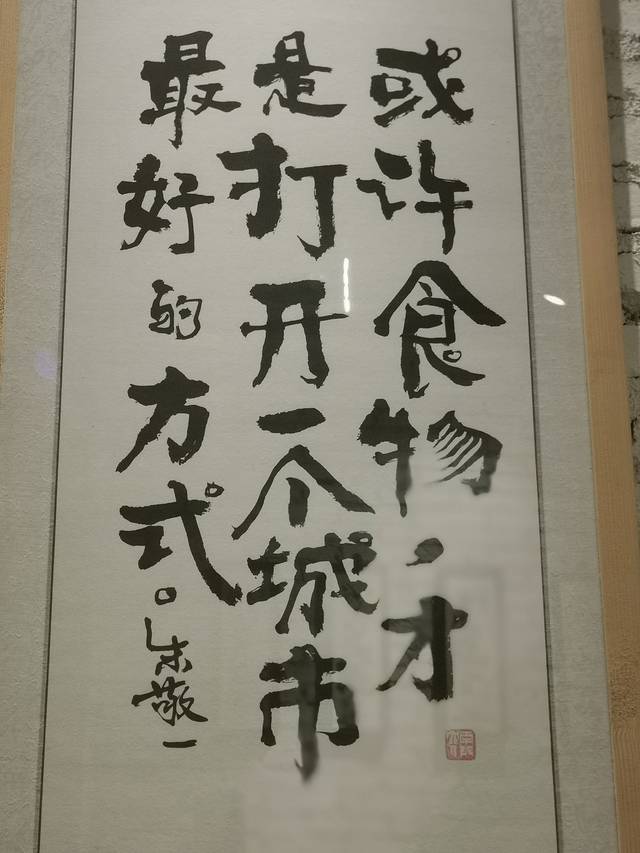 或许食物，才
是打开一个城市
最好的方式。
朱敬一